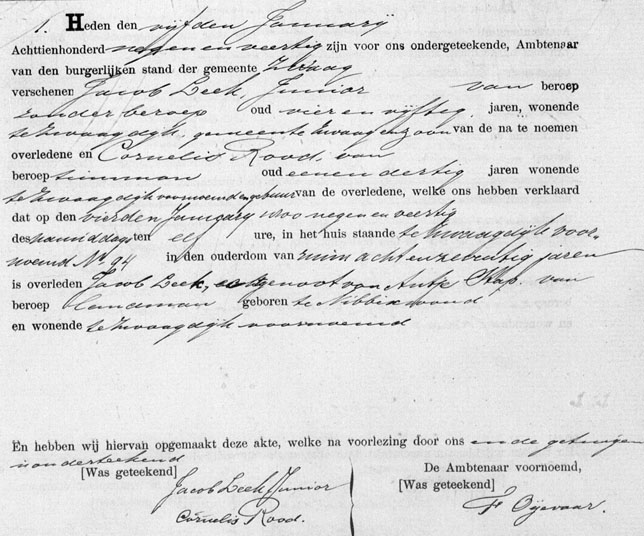 1. Heden den vijfden Januarij
Achttienhonderd negen en veertig zijn voor ons ondergeteekende, Ambtenaar
van den burgerlijken stand der gemeente Zwaag
verschenen Jacob Leek, Junior van beroep
zonder beroep oud vier en vijftig jaren, wonende
te Zwaagdijk, gemeente Zwaag en zoon van de na te noemen
overledene en Cornelis Rood van
beroep timman oud een en dertig jaren wonende
te Zwaagdijk voornoemd en gebuur van de overledene, welke ons hebben verklaard
dat op den vierden Januarij 1800 negen en veertig
des namiddags ten elf ure, in het huis staande te Zwaagdijk voor-
noemd No. 94 in den ouderdom van ruim acht en zeventig jaren
is overleden Jacob Leek, echtgenoot van Antje Stap. van
beroep landman geboren te Nibbixwoud
en wonende te Zwaagdijk voornoemd
En hebben wij hiervan opgemaakt deze akte, welke na voorlezing door ons en de getuigen
is onderteekend
[Was geteekend]
Jacob Leek Junior
Cornelis Rood.
De Ambtenaar voornoemd,
[Was geteekend]
Oijevaar.